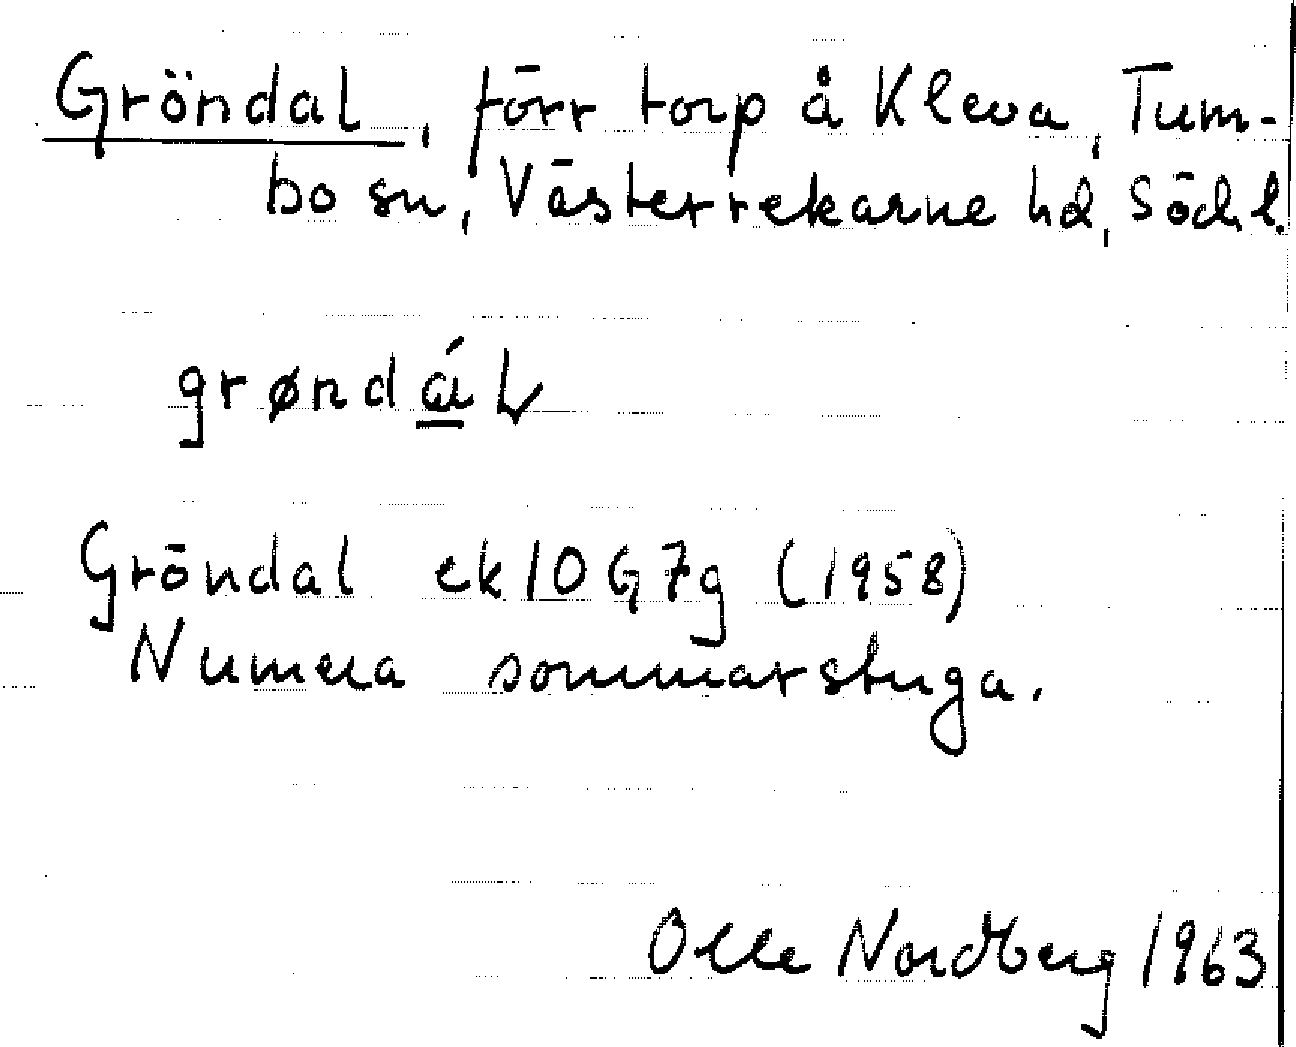 Gröndal, förr torp å Kleva, Tum-
bo sn, Västerrekarne hd, Södl.
grøndál
Gröndal ek 10G7g (1958)
Numera sommarstuga.
Olle Nordberg 1963